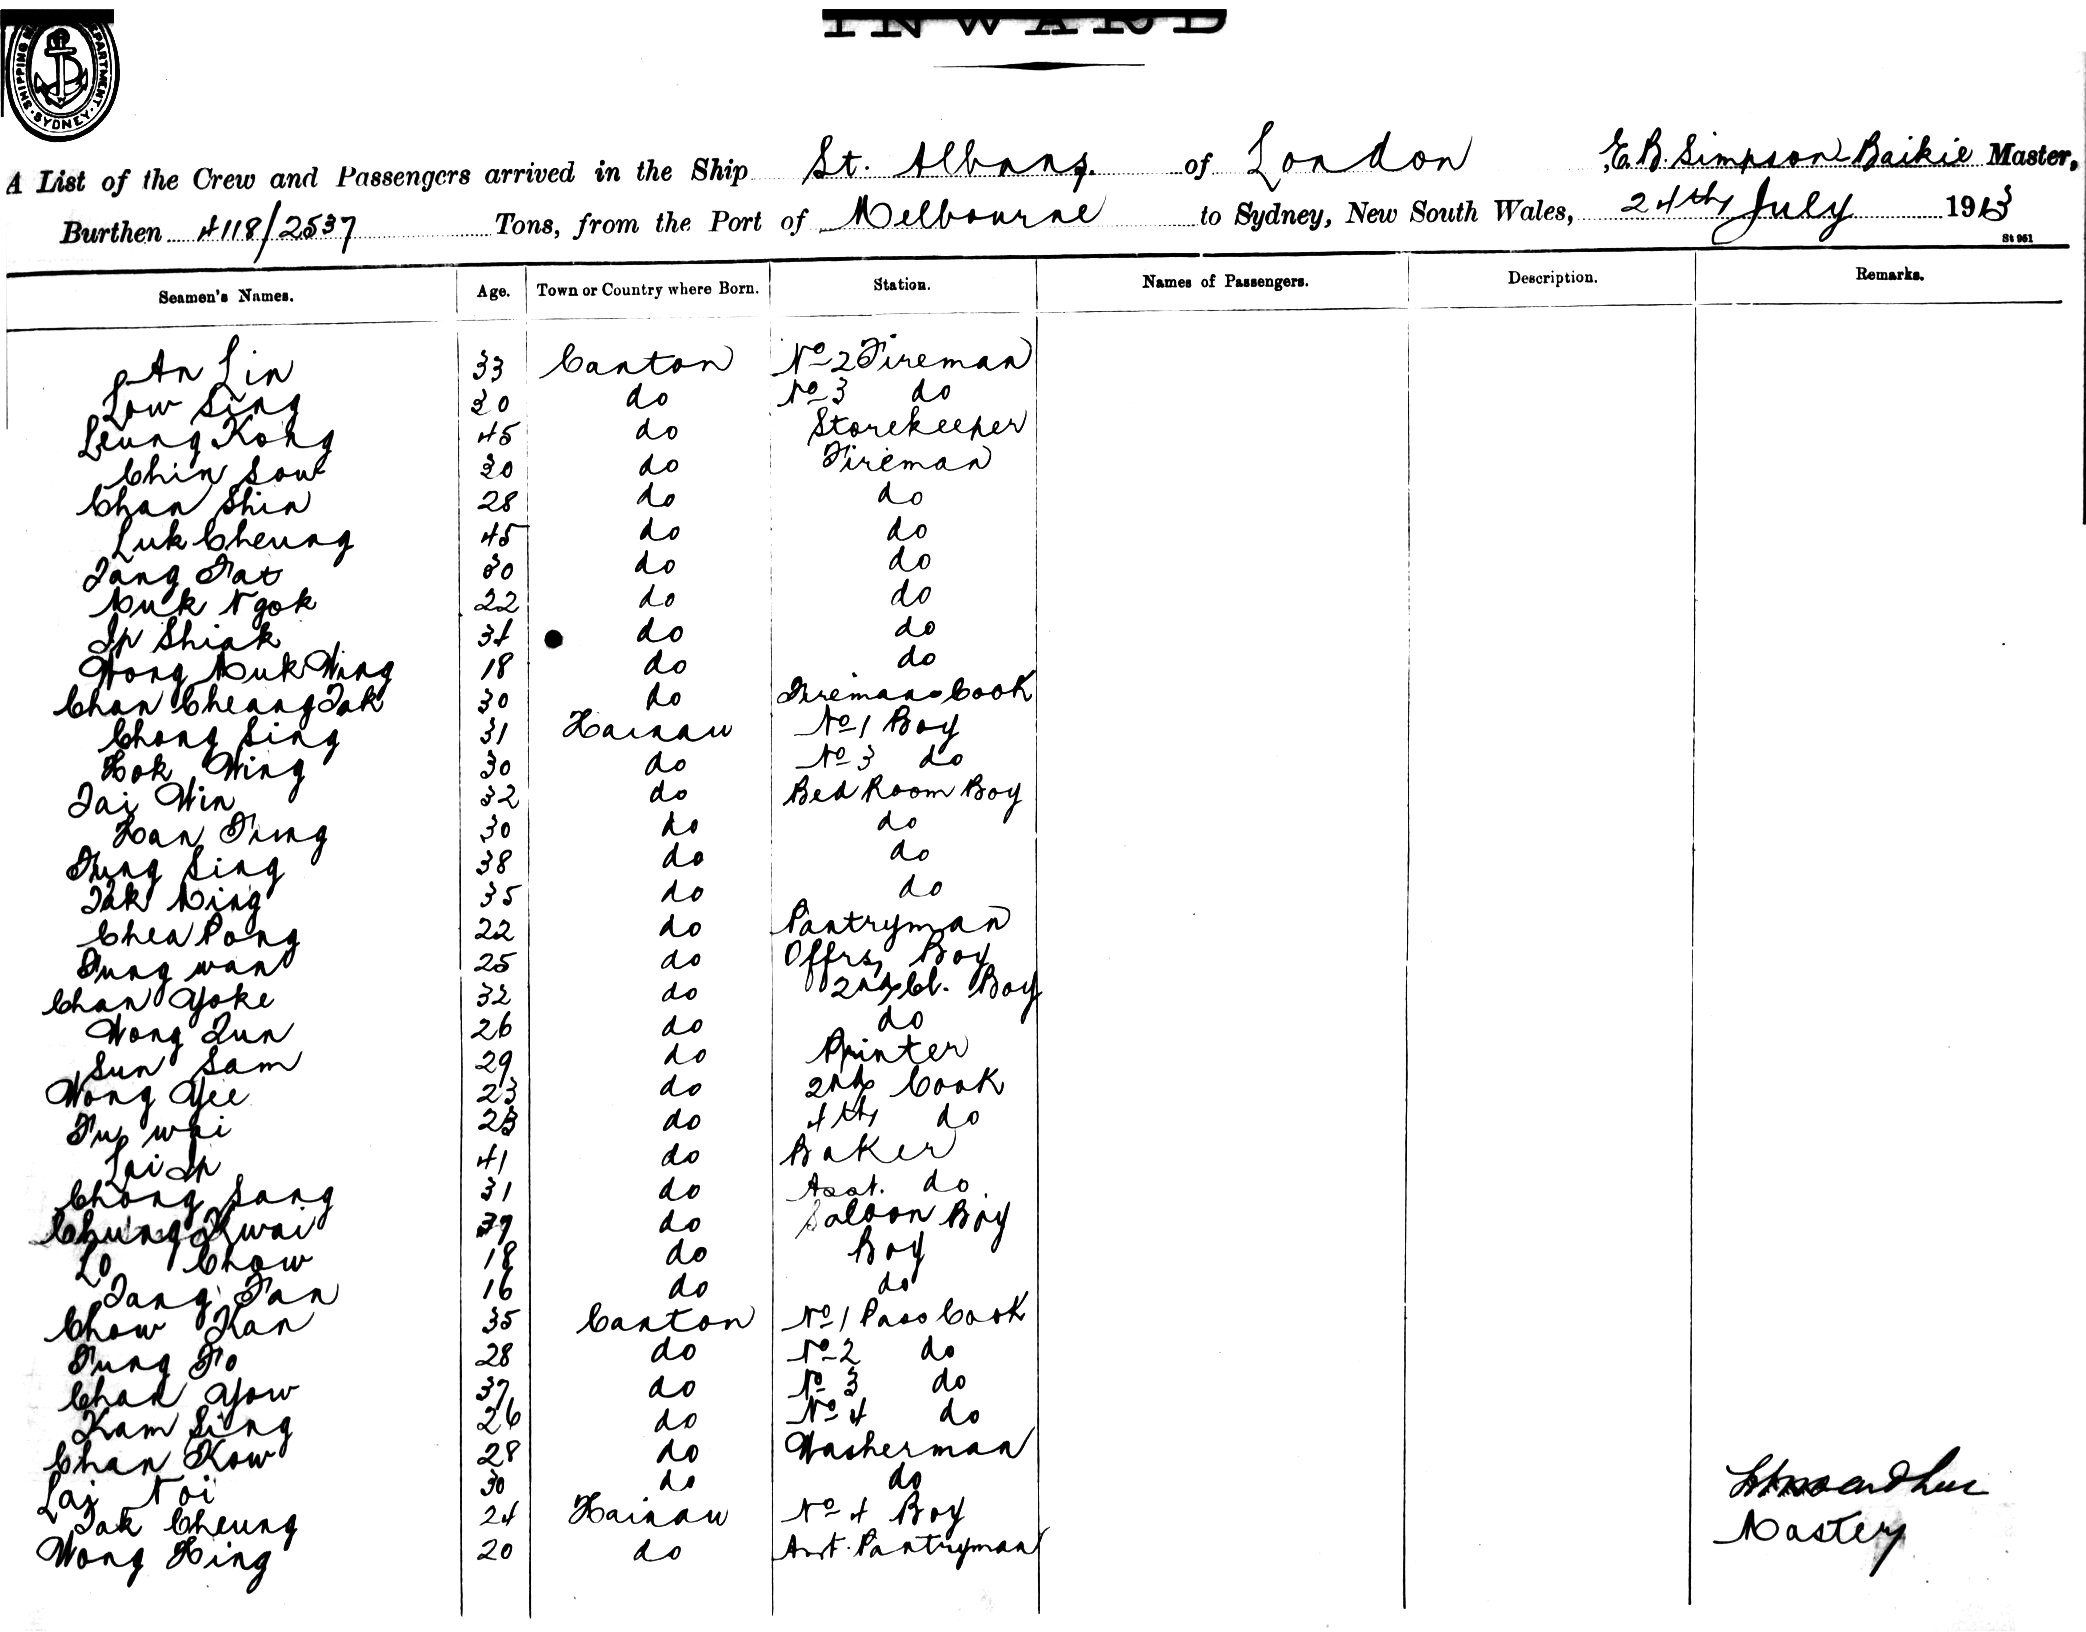 INWARD
SHIPPING DEPARTMENT SYDNEY
A List of the Crew and Passengers arrived in the Ship St. Albans. of London E.B. Simpson-Baikie Master,
Burthen 4118/2537 Tons, from the Port of Melbourne to Sydney, New South Wales, 24th July 1913
St 961
Seamen's Names. Age. Town or Country where Born. Station. Names of Passengers. Description. Remarks.
An Lin 33 Canton No 2 Fireman
Low Sing 30 do No 3 do
Leung Kong 45 do Storekeeper
Chin Sow 30 do Fireman
Chan Shin 28 do do
Luk Cheung 45 do do
Tang Fat 30 do do
Muk Ngok 22 do do
Ip Shiak 34 do do
Wong Muk Wing 18 do do
Chan Cheang Tak 30 do Firemans Cook
Chong Sing 31 Hainau No 1 Boy
Hok Wing 30 do No 3 do
Tai Win 32 do Bed Room Boy
Han Fung 30 do do
Fung Sing 38 do do
Tak Ming 35 do do
Chea Pong 22 do Pantryman
Fung wan 25 do Offrs, Boy
Chan Yoke 32 do 2nd Cl. Boy
Wong Lun 26 do do
Sun Sam 29 do Printer
Wong Yee 23 do 2nd Cook
Fu wai 23 do 4th do
Loi Ip 41 do Baker
Chong Sang 31 do Asst. do
Chung Kwai 37 do Saloon Boy
Lo Chow 18 do Boy
Tang Fan 16 do do
Chow Kan 35 Canton No 1 Pass Cook
Fung Fo 28 do No 2 do
Chan Yow 37 do No 3 do
Kam Sing 26 do No 4 do
Chan Kow 28 do Washerman
Lai Noi 30 do do
Tak Cheung 24 Hainau No 4 Boy
Master
Wong Hing 20 do Asst. Pantryman